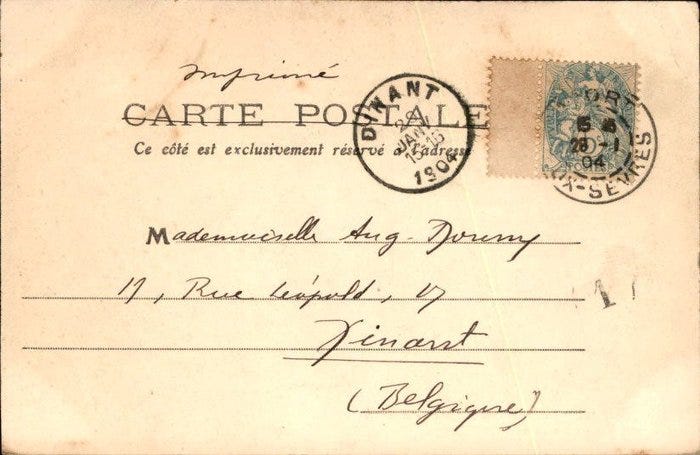 Imprimé
CARTE POSTALE
Ce côté est exclusivement réservé à l'adresse
DINANT
29
JANV
15-16
1904
28 -1
04
UX-SÈVRES
Mademoiselle Aug.
17, Rue Léopold, 17
Dinant
(Belgique)